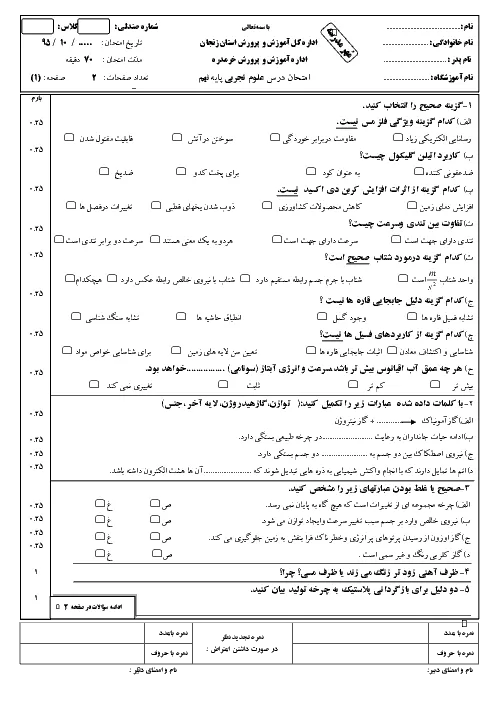 نام: ............
نام خانوادگی: ............
نام پدر: ............
نام آموزشگاه: ............
باسمه‌تعالی
اداره کل آموزش و پرورش استان زنجان
اداره آموزش و پرورش خرمدره
امتحان درس علوم تجربی پایه نهم
شماره صندلی: کلاس:
تاریخ امتحان: ..... / ۱۰ / ۹۵
مدت امتحان: ۷۰ دقیقه
تعداد صفحات: ۲ صفحه: (۱)
بارم
۱-گزینه صحیح را انتخاب کنید.
الف) کدام گزینه ویژگی فلز مس نیست. ۰.۲۵
رسانایی الکتریکی زیاد مقاومت دربرابر خوردگی سوختن در آتش قابلیت مفتول شدن
ب) کاربرد اتیلن گلیکول چیست؟ ۰.۲۵
ضدعفونی کننده به عنوان کود برای پخت کدو ضدیخ
پ) کدام گزینه از اثرات افزایش کربن دی اکسید نیست. ۰.۲۵
افزایش دمای زمین کاهش محصولات کشاورزی ذوب شدن یخهای قطبی تغییرات درفصل ها
ت) تفاوت بین تندی وسرعت چیست؟ ۰.۲۵
تندی دارای جهت است سرعت دارای جهت است هردو به یک معنی هستند سرعت دو برابر تندی است
ث) کدام گزینه درمورد شتاب صحیح است؟ ۰.۲۵
واحد شتاب m/s² است شتاب با جرم جسم رابطه مستقیم دارد شتاب با نیروی خالص رابطه عکس دارد هیچکدام
ج) کدام گزینه دلیل جابجایی قاره ها نیست ؟ ۰.۲۵
تشابه فسیل قاره ها وجود گسل انطباق حاشیه ها تشابه سنگ شناسی
چ) کدام گزینه از کاربردهای فسیل ها نیست؟ ۰.۲۵
شناسایی و اکتشاف معادن اثبات جابجایی قاره ها تعیین سن لایه های زمین برای شناسایی خواص مواد
ح) هر چه عمق آب اقیانوس بیش تر باشد،سرعت و انرژی آبتاز (سونامی) ...............خواهد بود. ۰.۲۵
بیش تر کم تر ثابت تغییری نمی کند
۲-با کلمات داده شده عبارات زیر را تکمیل کنید:( توازن،گازهیدروژن،لایه آخر ،جنس)
الف) گاز آمونیاک ← ............ + گاز نیتروژن ۰.۲۵
ب) ادامه حیات جانداران به رعایت ......................در چرخه طبیعی بستگی دارد. ۰.۲۵
ج) نیروی اصطکاک بین دو جسم به .................... دو جسم بستگی دارد. ۰.۲۵
د) اتم ها تمایل دارند که با انجام واکنش شیمیایی به ذره هایی تبدیل شوند که ....................آن ها هشت الکترون داشته باشد. ۰.۲۵
۳-صحیح یا غلط بودن عبارتهای زیر را مشخص کنید.
الف) چرخه مجموعه ای از تغییرات است که هیچ گاه به پایان نمی رسد. ص غ ۰.۲۵
ب) نیروی خالص وارد بر جسم سبب تغییر سرعت وایجاد توازن می شود. ص غ ۰.۲۵
ج) گاز اوزون از رسیدن پرتوهای پر انرژی و خطرناک فرا بنفش به زمین جلوگیری می کند. ص غ ۰.۲۵
د) گاز کلر بی رنگ و غیر سمی است . ص غ ۰.۲۵
۴- ظرف آهنی زود تر زنگ می زند یا ظرف مسی؟ چرا؟ ۱
۵- دو دلیل برای بازگردانی پلاستیک به چرخه تولید بیان کنید. ۱
ادامه سوالات در صفحه ۲
نمره با عدد
نمره با حروف
نمره تجدید نظر
در صورت داشتن اعتراض :
نمره با عدد
نمره با حروف
نام و امضای دبیر:
نام و امضای دبیر :